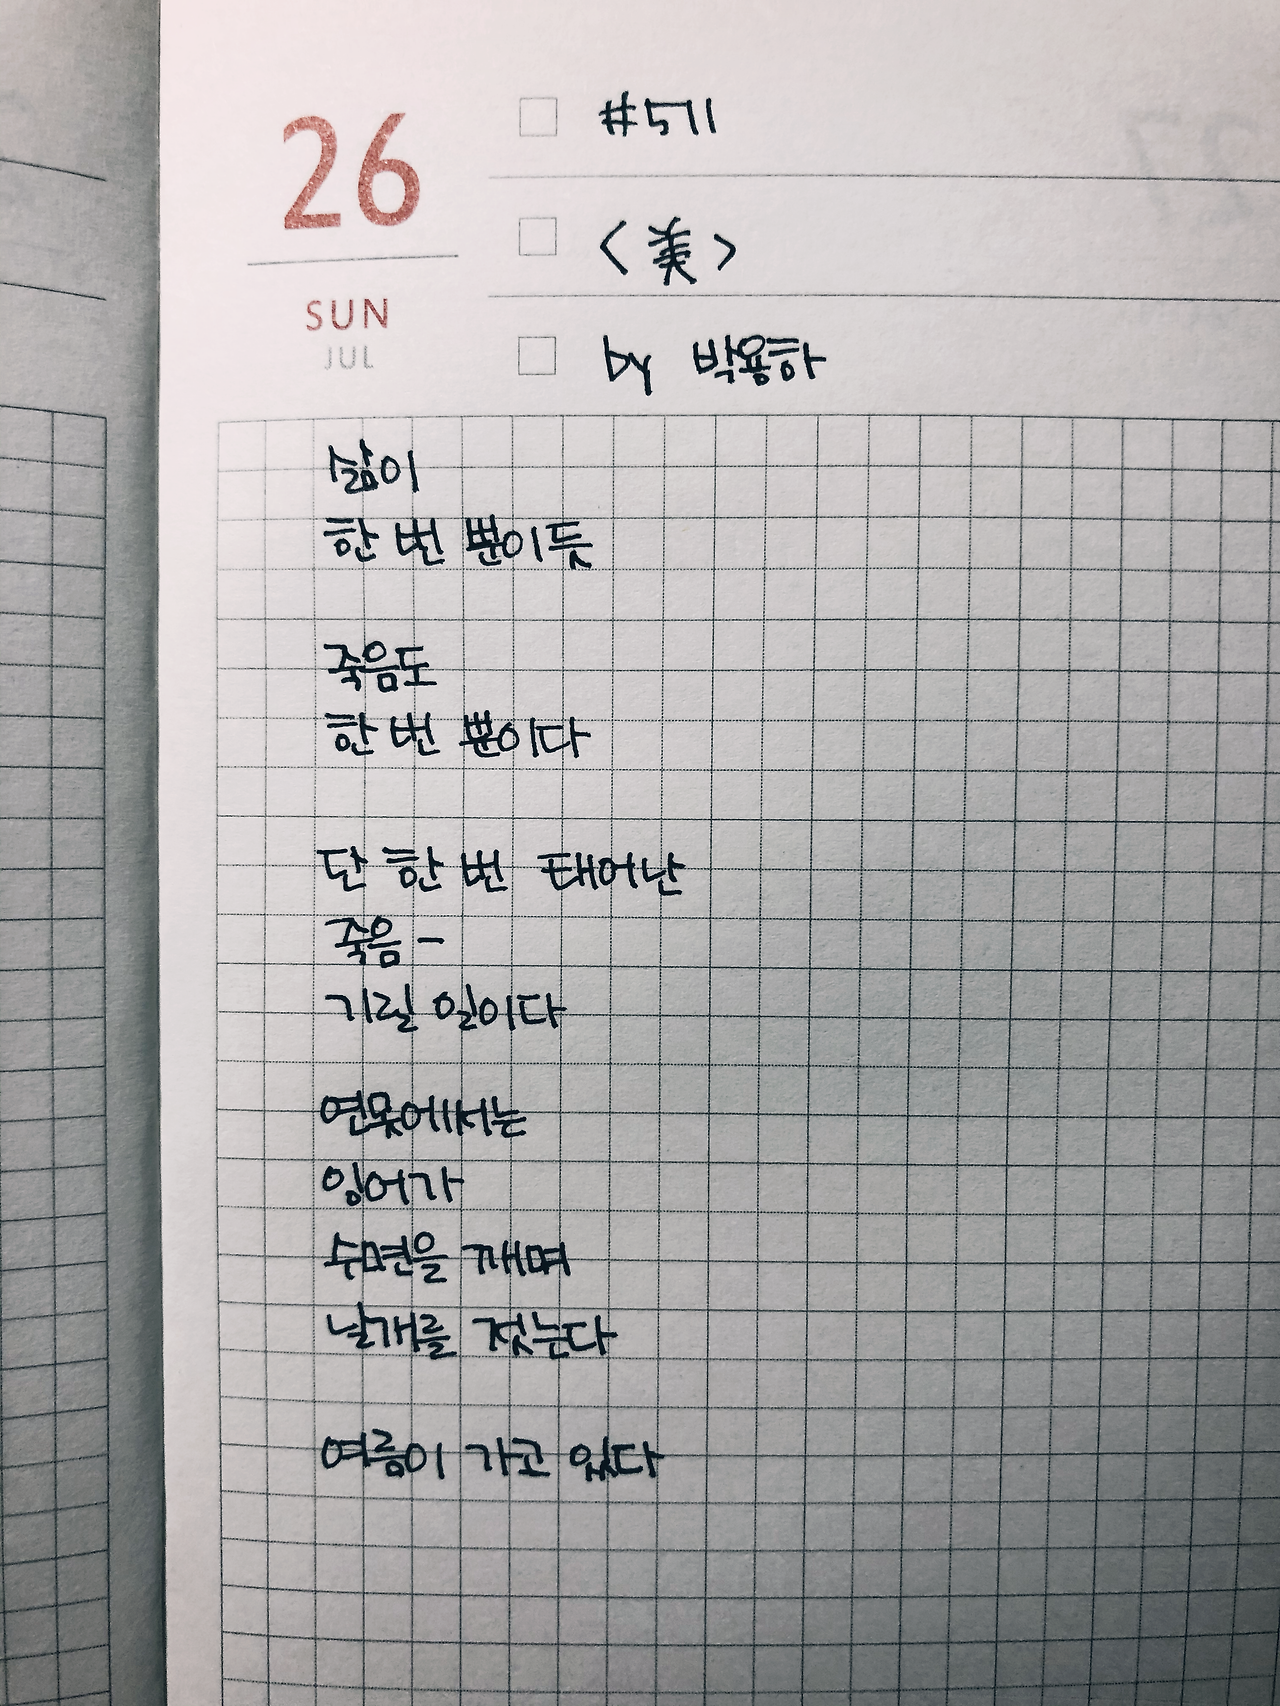 26
SUN
JUL
#571
<美>
by 박용하
삶이
한 번 뿐이듯
죽음도
한 번 뿐이다
단 한 번 태어난
죽음-
기릴 일이다
연못에서는
잉어가
수면을 깨며
날개를 젓는다
여름이 가고 있다